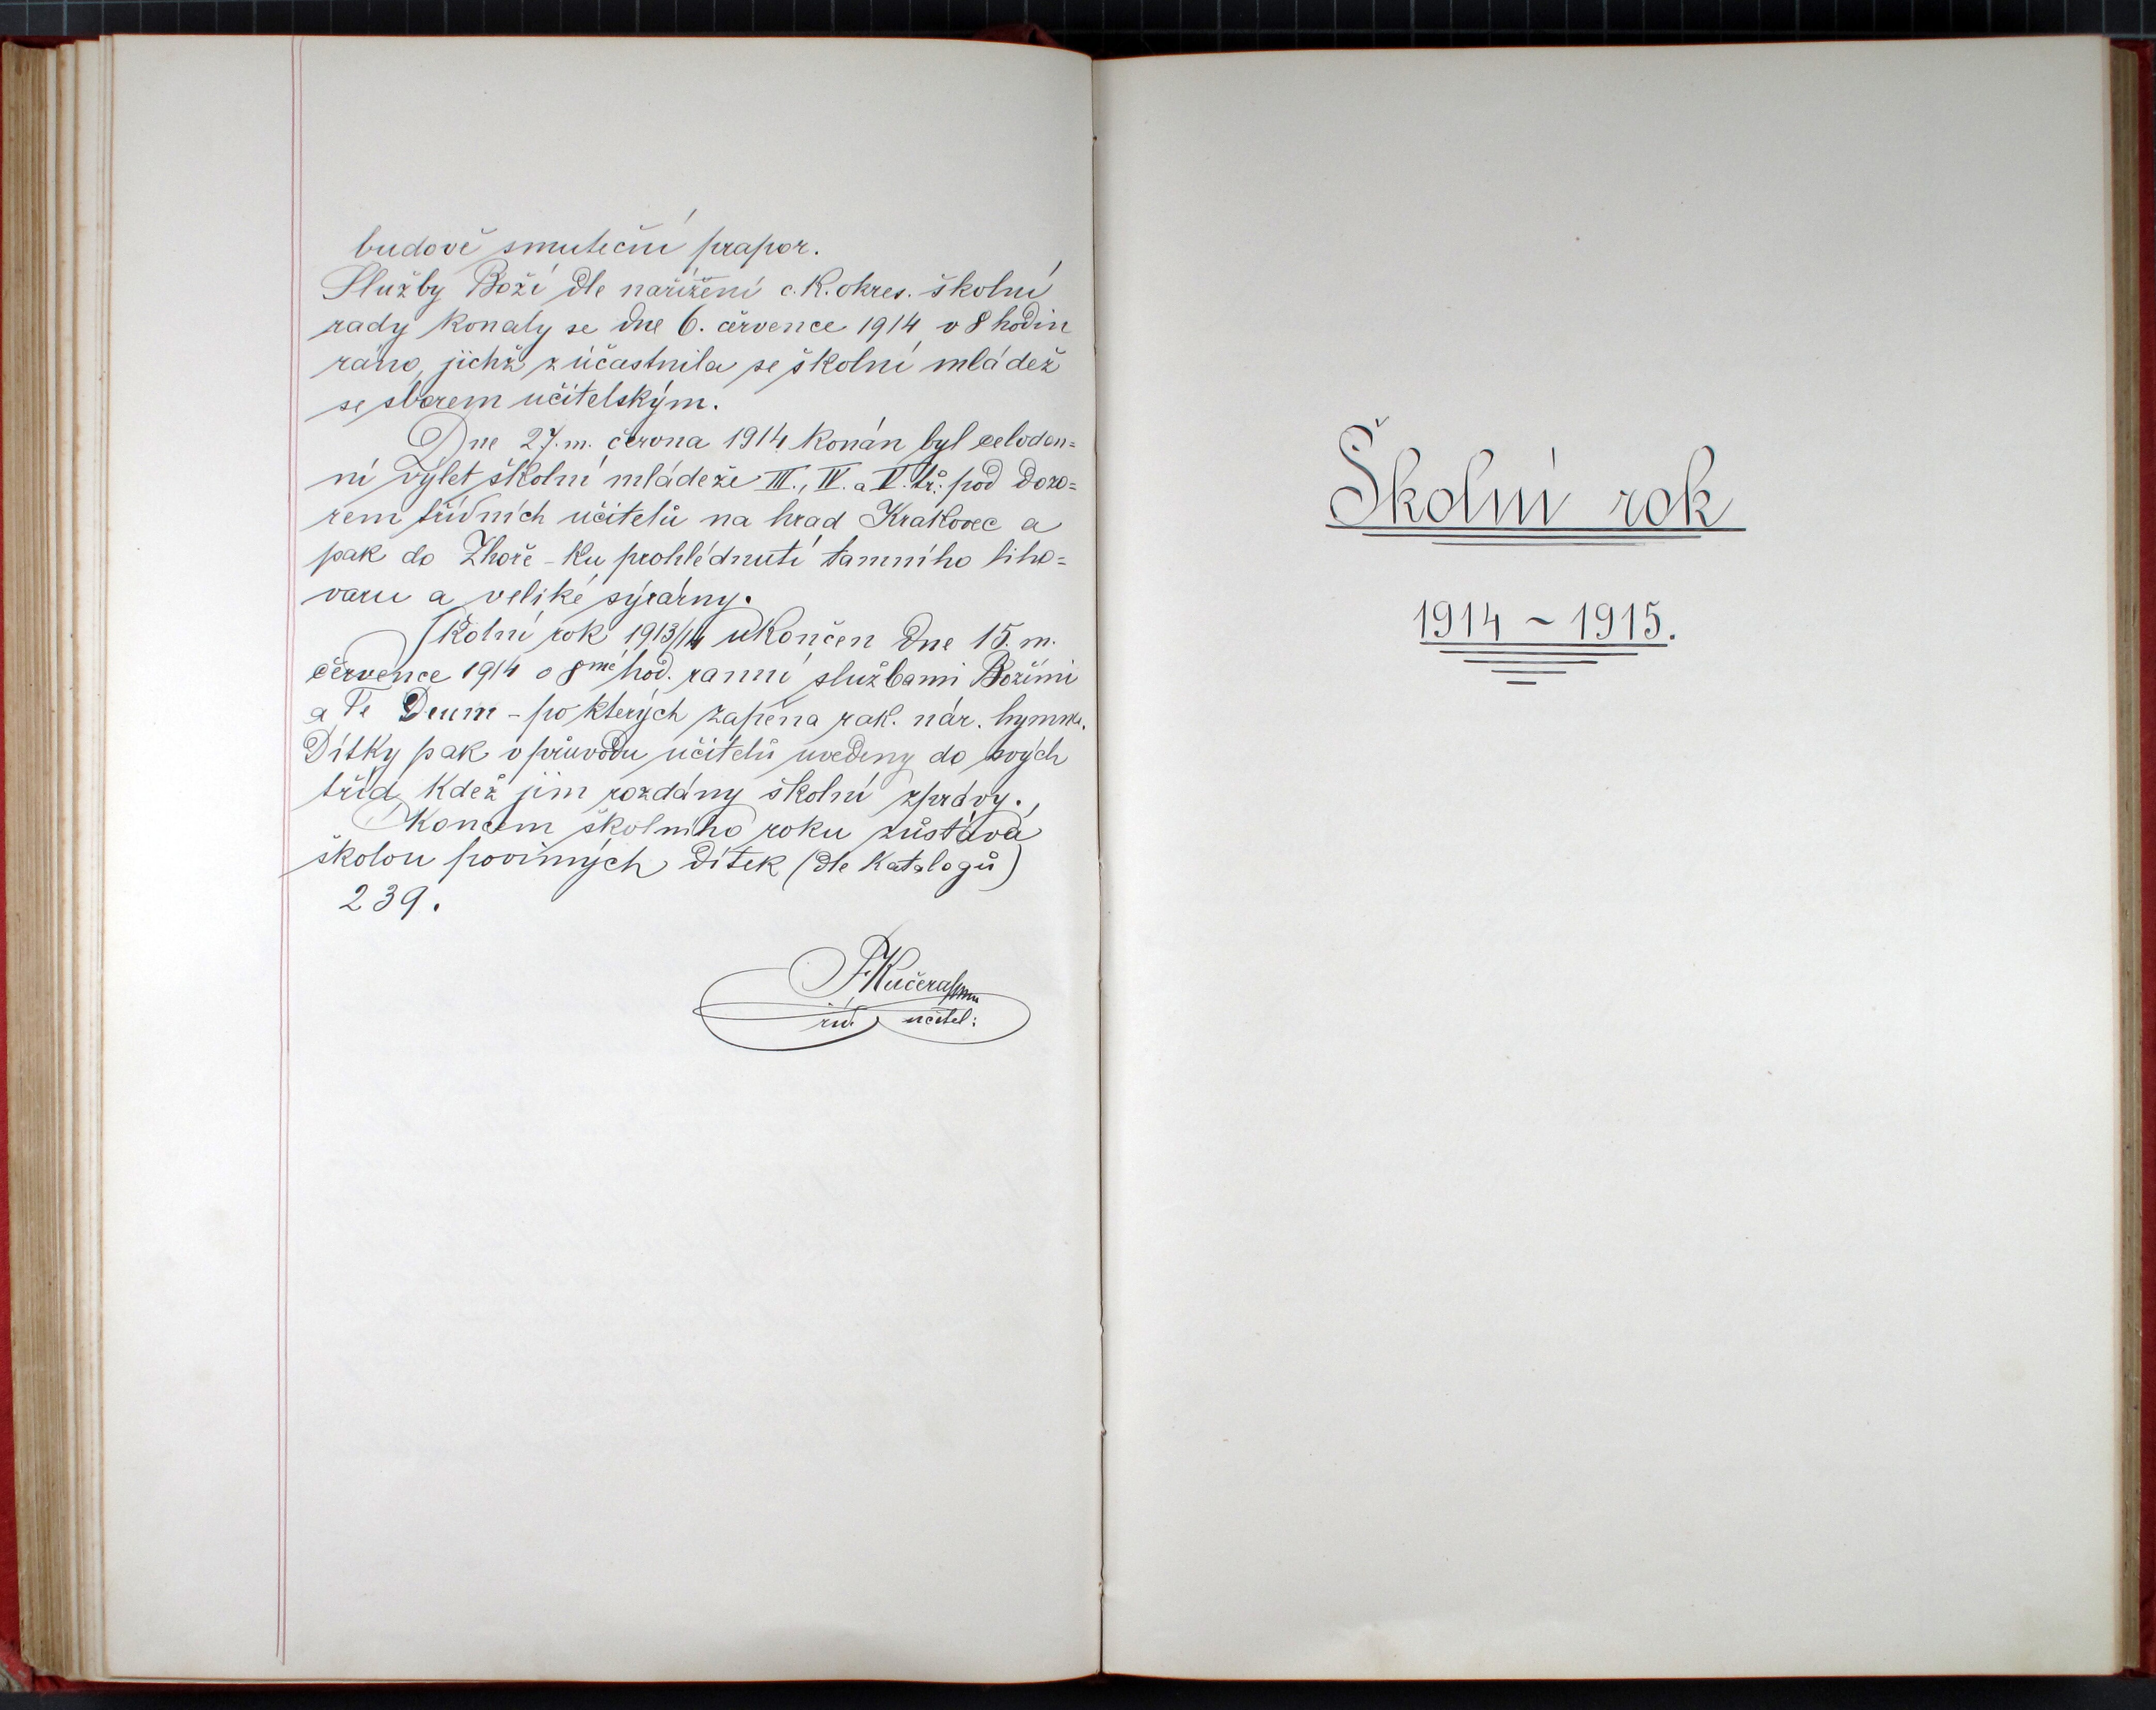 budově smuteční prapor.
Služby Boží dle nařízení c. k. okres. školní
rady konaly se dne 6. července 1914 v 8 hodin
ráno, jichž zúčastnila se školní mládež
se sborem učitelským.
Dne 27. m. června 1914 konán byl celoden=
ní výlet školní mládeže III., IV. a V. tř. pod dozo=
rem třídních učitelů na hrad Krakovec a
pak do Zhoře - ku prohlédnutí tamního liho=
varu a veliké sýrárny.
Školní rok 1913/14 ukončen dne 15. m.
července 1914 o 8mé hod. ranní službami Božími
a Te Deum - po kterých zapěna rak. nár. hymna.
Dítky pak v průvodu učitelů uvedeny do svých
tříd, kdež jim rozdány školní zprávy.
Koncem školního roku zůstává
školou povinných dítek (dle katalogů)
239.
F. Kučera
říd. učitel:
Školní rok
1914 ~ 1915.